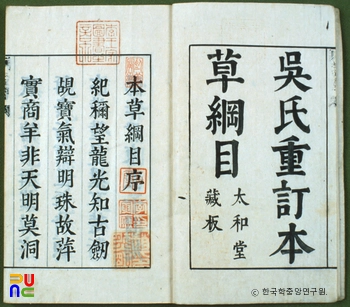 吳氏重訂本
草綱目
太和堂
藏板
本草綱目序
紀稱望龍光知古劒
覘寶氣辯明珠故萍
實商羊非天明莫洞
ⓒ 한국학중앙연구원